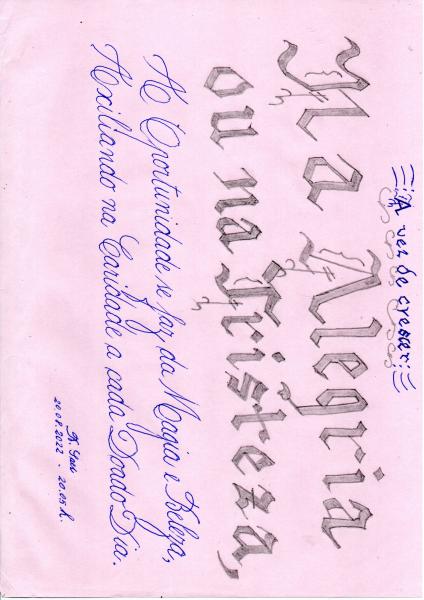 "A vez de crescer"
Na Alegria
ou na Tristeza,
A Oportunidade se faz da Magia e Beleza,
Axiliando na Caridade a cada Doado Dia.
20.08.2022 - 20.05 h.